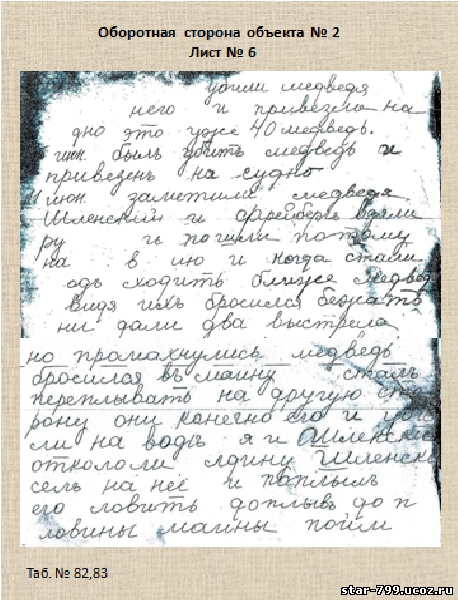 Оборотная сторона объекта № 2
Лист № 6
убили медведя
него и привезли на
дно это уже 40 медведь.
июн. былъ убитъ медведь и
привезенъ на судно
июн. заметили медведя
Шленский и Фрейбергъ взяли
ру и пошли потому
на в ию и когда стали
одь сходить ближе медвед
видя ихъ бросился бежать
ни дали два выстрела
но прамахнулись медведь
бросился въ маину сталъ
переплывать на другую ст
рону они канегно его и уби
ли на воде я и Шленско
откололи лдину Шленско
селъ на неё и поплылъ
его ловить доплывъ до п
ловины маины пойм
Таб. № 82,83
star-799.ucoz.ru